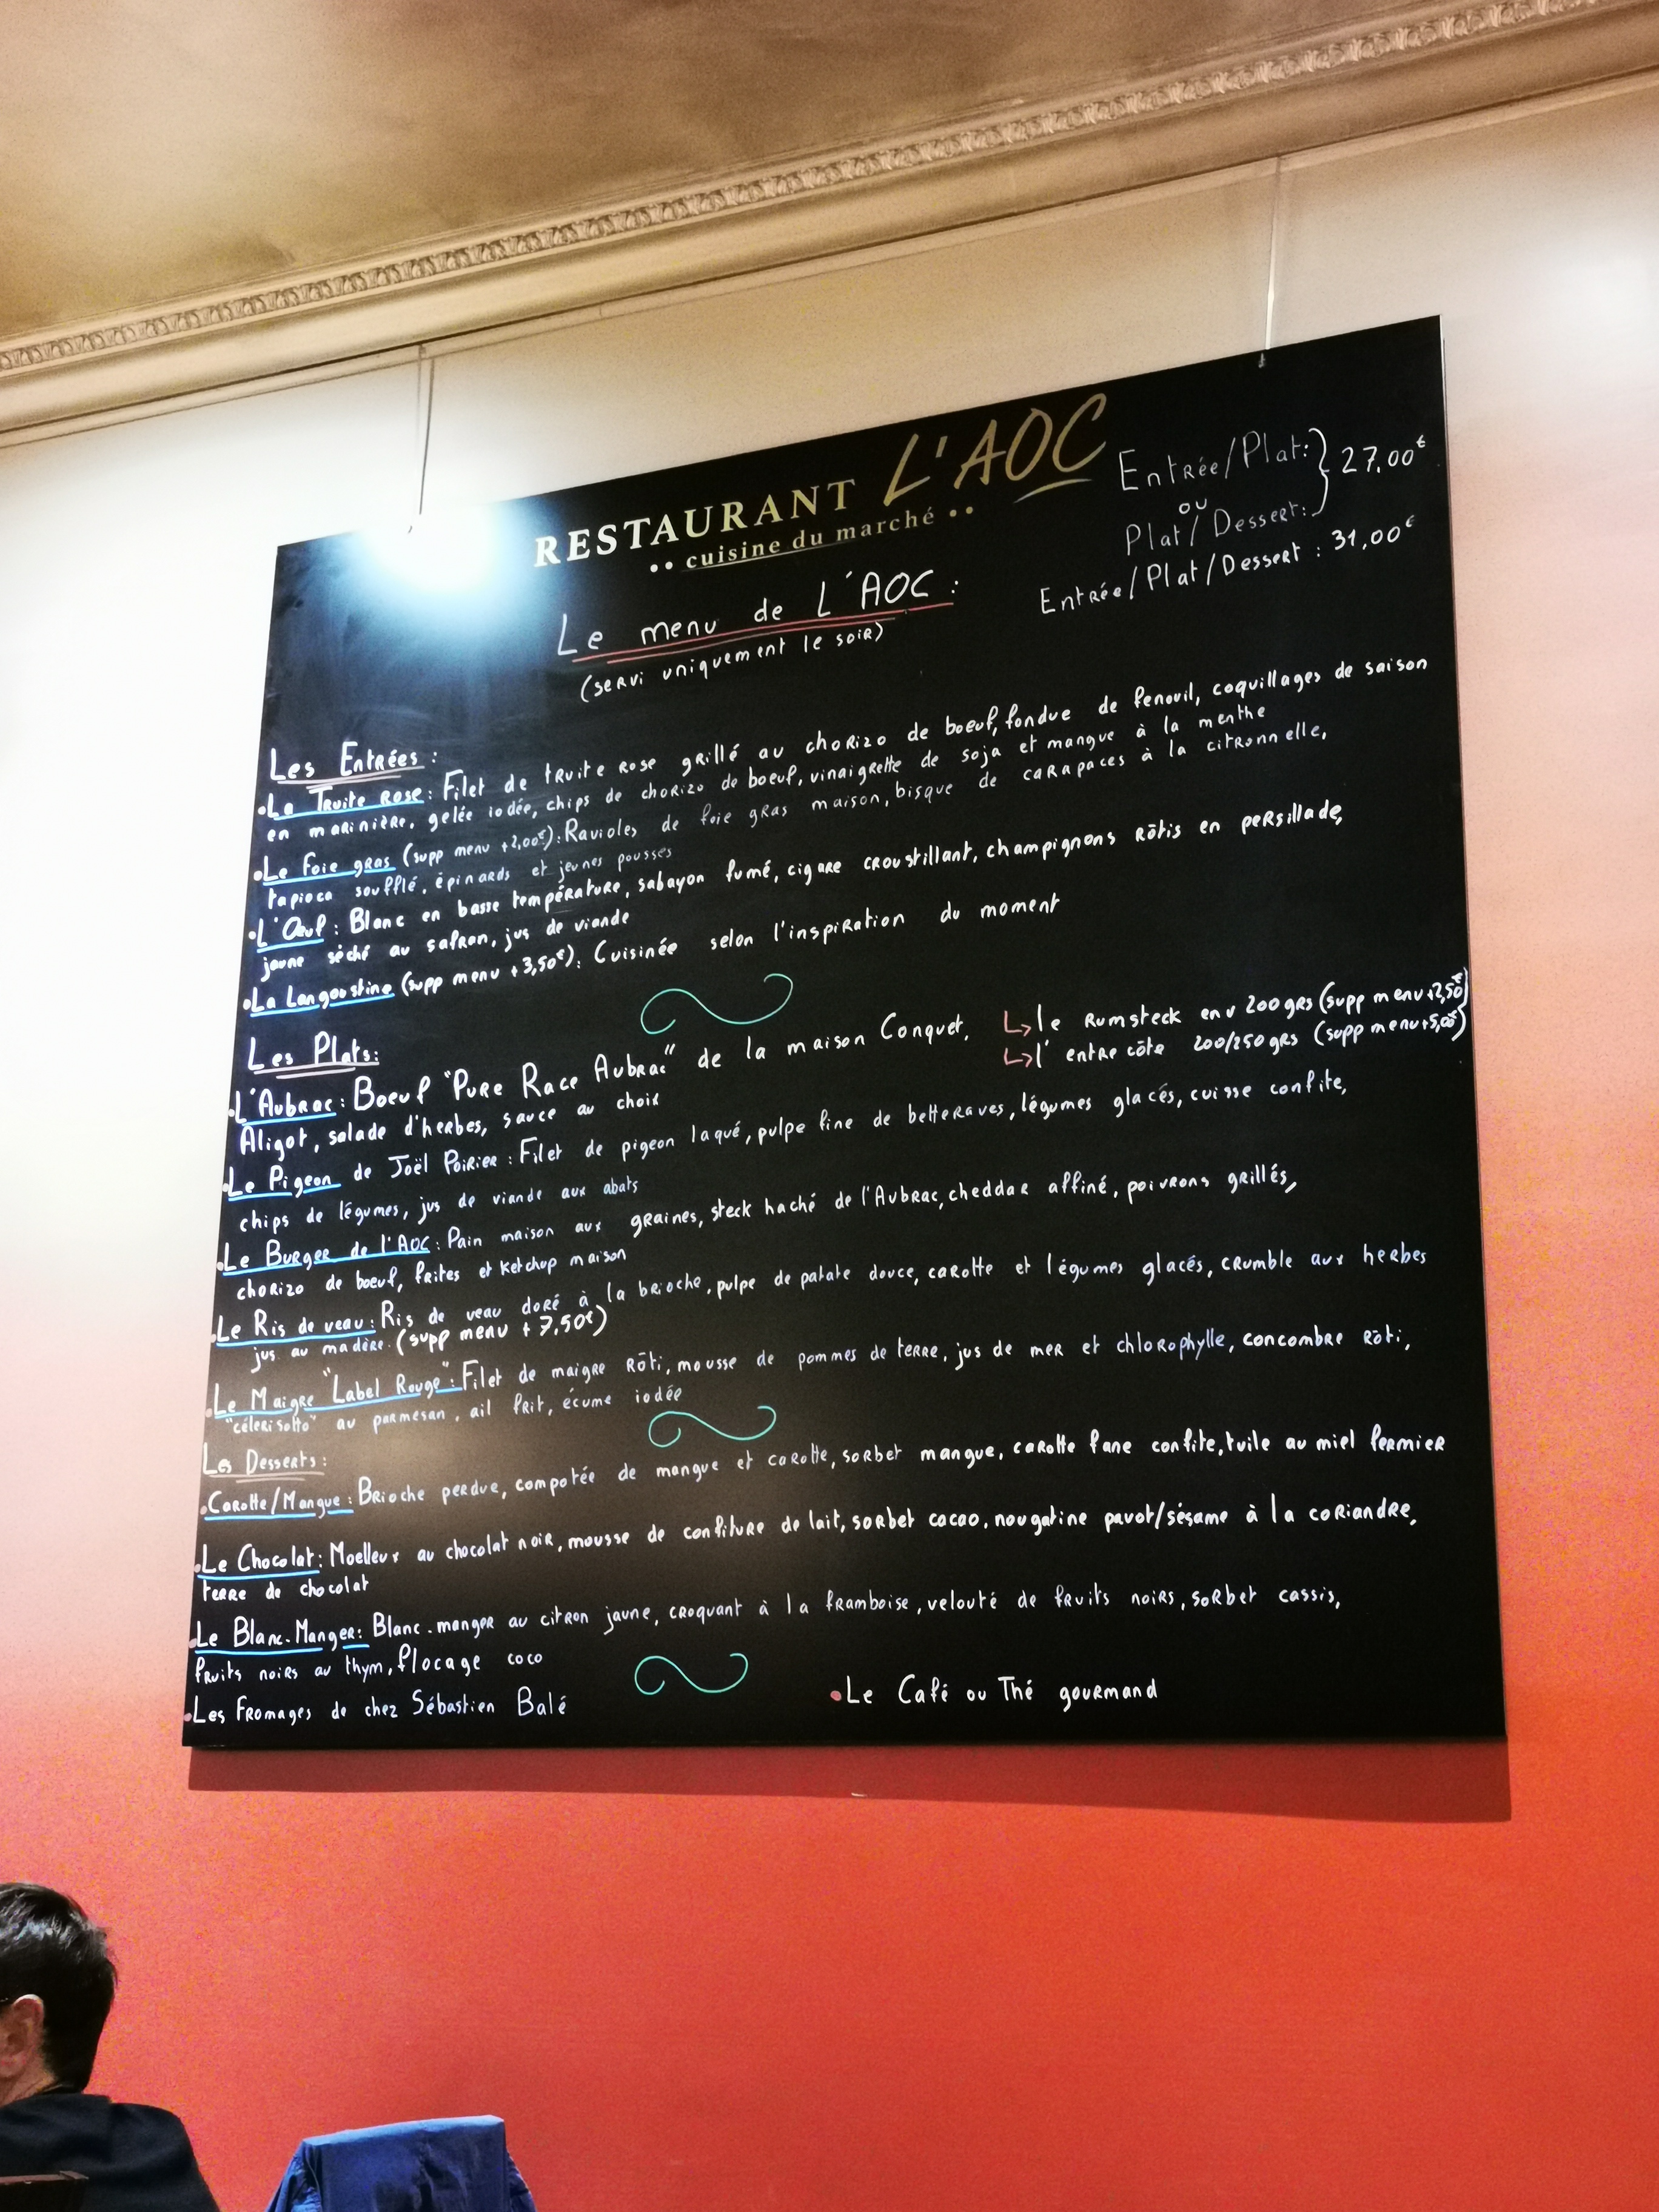 RESTAURANT L'AOC
•• cuisine du marché ••
Entrée/Plat: } 27,00€
ou
Plat/Dessert:
Entrée/Plat/Dessert : 31,00€
Le menu de L'AOC :
(servi uniquement le soir)
Les Entrées :
•La Truite rose : Filet de truite rose grillé au chorizo de boeuf, fondue de fenouil, coquillages de saison
en marinière, gelée iodée, chips de chorizo de boeuf, vinaigrette de soja et mangue à la menthe
•Le foie gras (supp menu +2,00€): Ravioles de foie gras maison, bisque de carapaces à la citronnelle,
tapioca soufflé, épinards et jeunes pousses
•L'Oeuf : Blanc en basse température, sabayon fumé, cigare croustillant, champignons rôtis en persillade,
jaune séché au safran, jus de viande
•La Langoustine (supp menu +3,50€): Cuisinée selon l'inspiration du moment
Les Plats:
•L'Aubrac: Boeuf "Pure Race Aubrac" de la maison Conquet, ↳le Rumsteck env 200grs (supp menu+2,50€)
↳l'entre côte 200/250grs (supp menu+5,00€)
Aligot, salade d'herbes, sauce au choix
•Le Pigeon de Joël Poirier : Filet de pigeon laqué, pulpe fine de betteraves, légumes glacés, cuisse confite,
chips de légumes, jus de viande aux abats
•Le Burger de l'AOC : Pain maison aux graines, steck haché de l'Aubrac, cheddar affiné, poivrons grillés,
chorizo de boeuf, frites et ketchup maison
•Le Ris de veau: Ris de veau doré à la brioche, pulpe de patate douce, carotte et légumes glacés, crumble aux herbes
jus au madère. (supp menu + 7,50€)
•Le Maigre "Label Rouge": Filet de maigre rôti, mousse de pommes de terre, jus de mer et chlorophylle, concombre rôti,
"célerisotto" au parmesan, ail frit, écume iodée
Les Desserts :
•Carotte/Mangue : Brioche perdue, compotée de mangue et carotte, sorbet mangue, carotte fane confite, tuile au miel fermier
•Le Chocolat: Moelleux au chocolat noir, mousse de confiture de lait, sorbet cacao, nougatine pavot/sésame à la coriandre,
terre de chocolat
•Le Blanc-Manger: Blanc-manger au citron jaune, croquant à la framboise, velouté de fruits noirs, sorbet cassis,
fruits noirs au thym, flocage coco
•Les Fromages de chez Sébastien Balé
•Le Café ou Thé gourmand